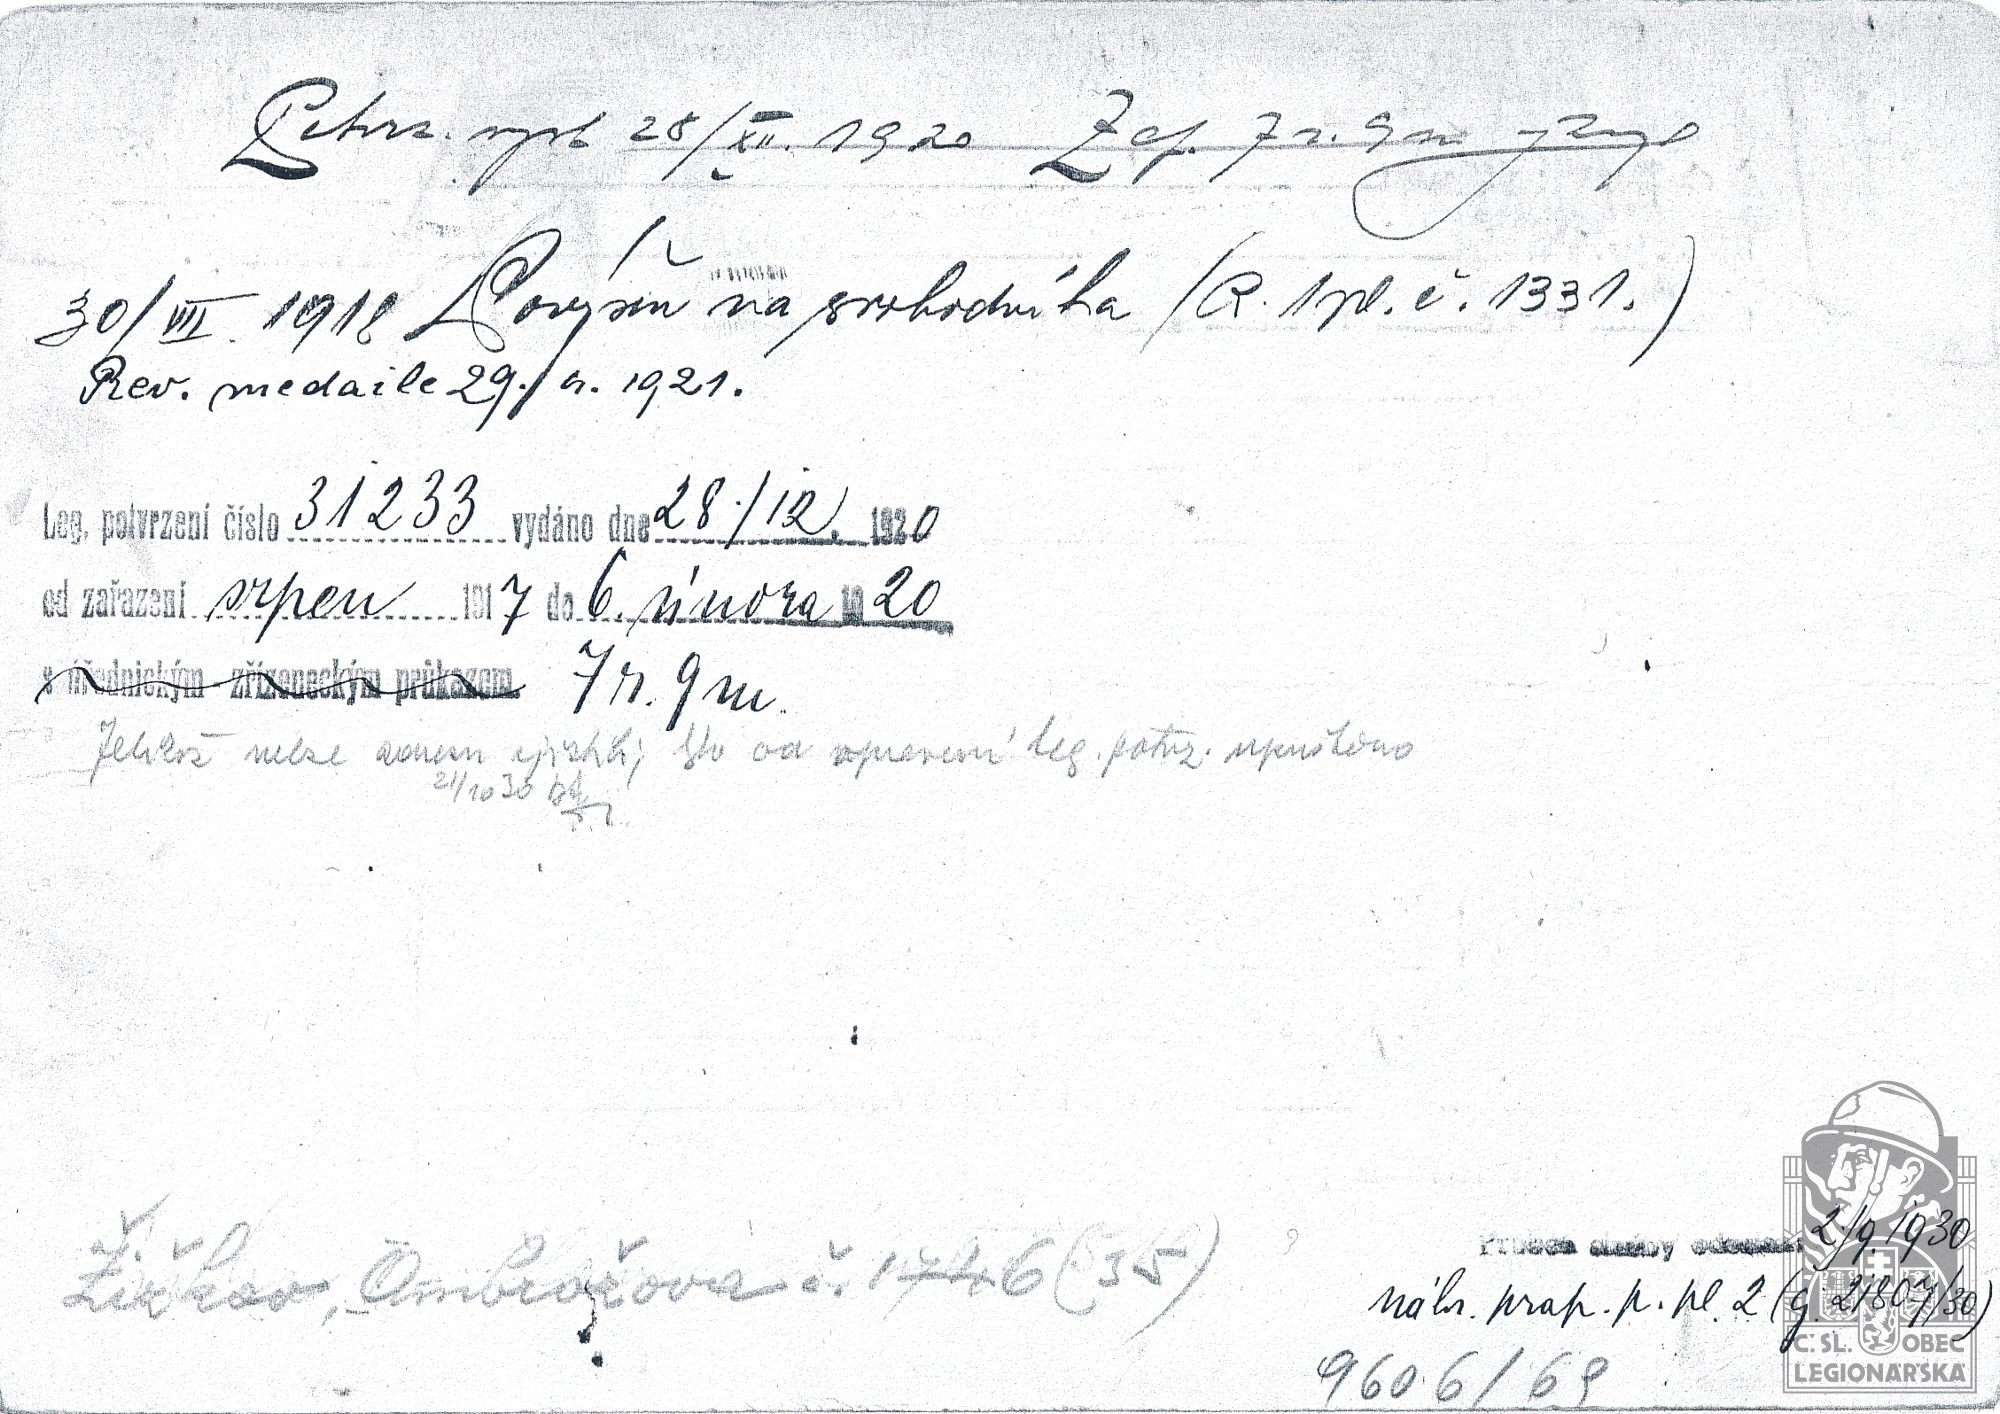 Potvrz. vyst 28/XII. 1920 Zap. 7 r. 9 m
30/VII. 1918 Povýšen na svobodníka (R. 1 pl. č. 1331.)
Rev. medaile 29./ 1921.
Leg. potvrzení číslo 31233 vydáno dne 28./12. 1920
od zařazení srpen 1917 do 6. února 1920
s úřednickým zřízeneckým průkazem. 7 r. 9 m.
Jelikož nelze od leg. potvrz. upuštěno
21/10 30
Žižkov, Ambrožova č. 6 (35)
Průběh služby odeslán 2/9. 1930
náhr. prap. p. pl. 2 (č. 21807/30)
9606/69
Č. SL. OBEC
LEGIONÁŘSKÁ